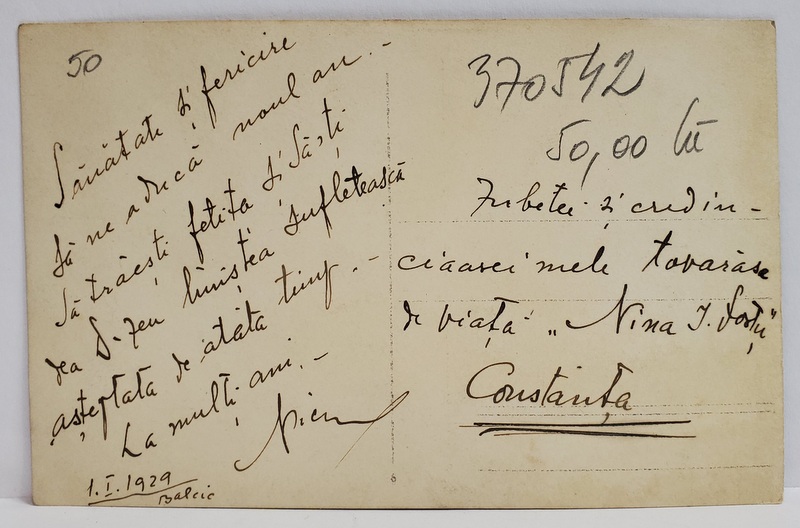 50
Sănătate și fericire
să ne aducă noul an.-
Să trăești fetița și să-ți
dea D-zeu liniștea sufletească
așteptata de atâta timp.-
La mulți ani.-
1.I.1929
Balcic
370542
50,00 lei
Iubitei și credin-
cioasei mele tovarășe
de viață „Nina I.
Constanța